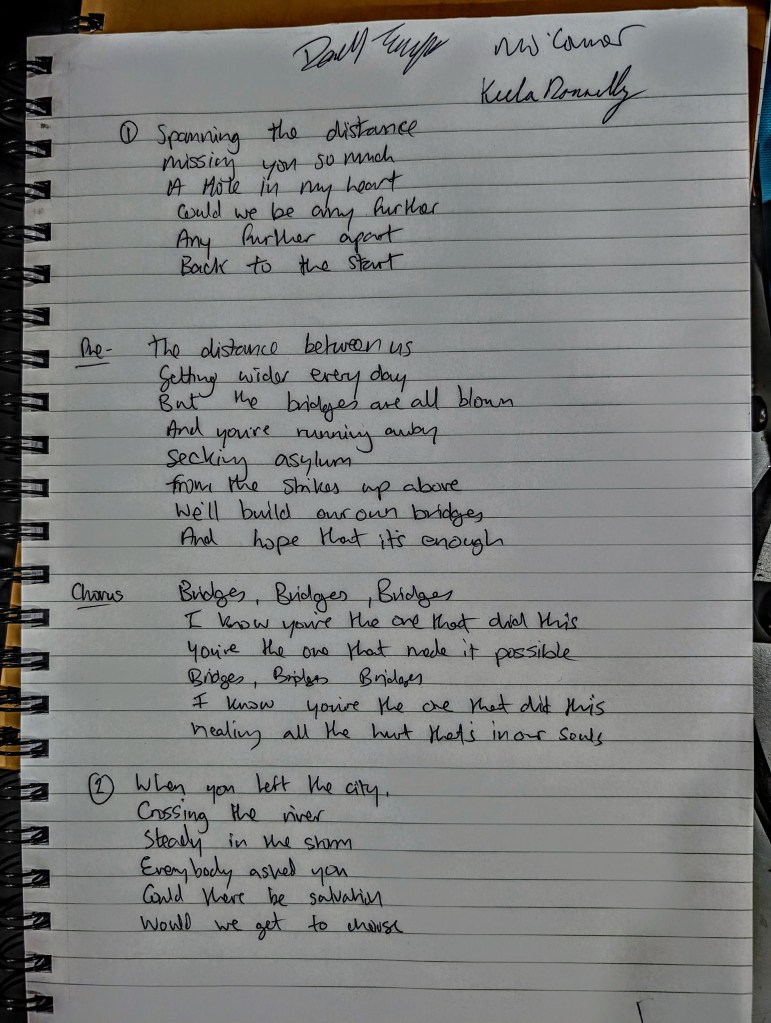 Keela Donnelly
① Spanning the distance
missing you so much
A Hole in my heart
Could we be any further
Any further apart
Back to the start
Pre- The distance between us
Getting wider every day
But the bridges are all blown
And you're running away
Seeking asylum
from the strikes up above
We'll build our own bridges
And hope that it's enough
Chorus Bridges, Bridges, Bridges
I know you're the one that did this
You're the one that made it possible
Bridges, Bridges Bridges
I know you're the one that did this
healing all the hurt that's in our souls
② When you left the city,
Crossing the river
Steady in the storm
Everybody asked you
Could there be salvation
Would we get to choose